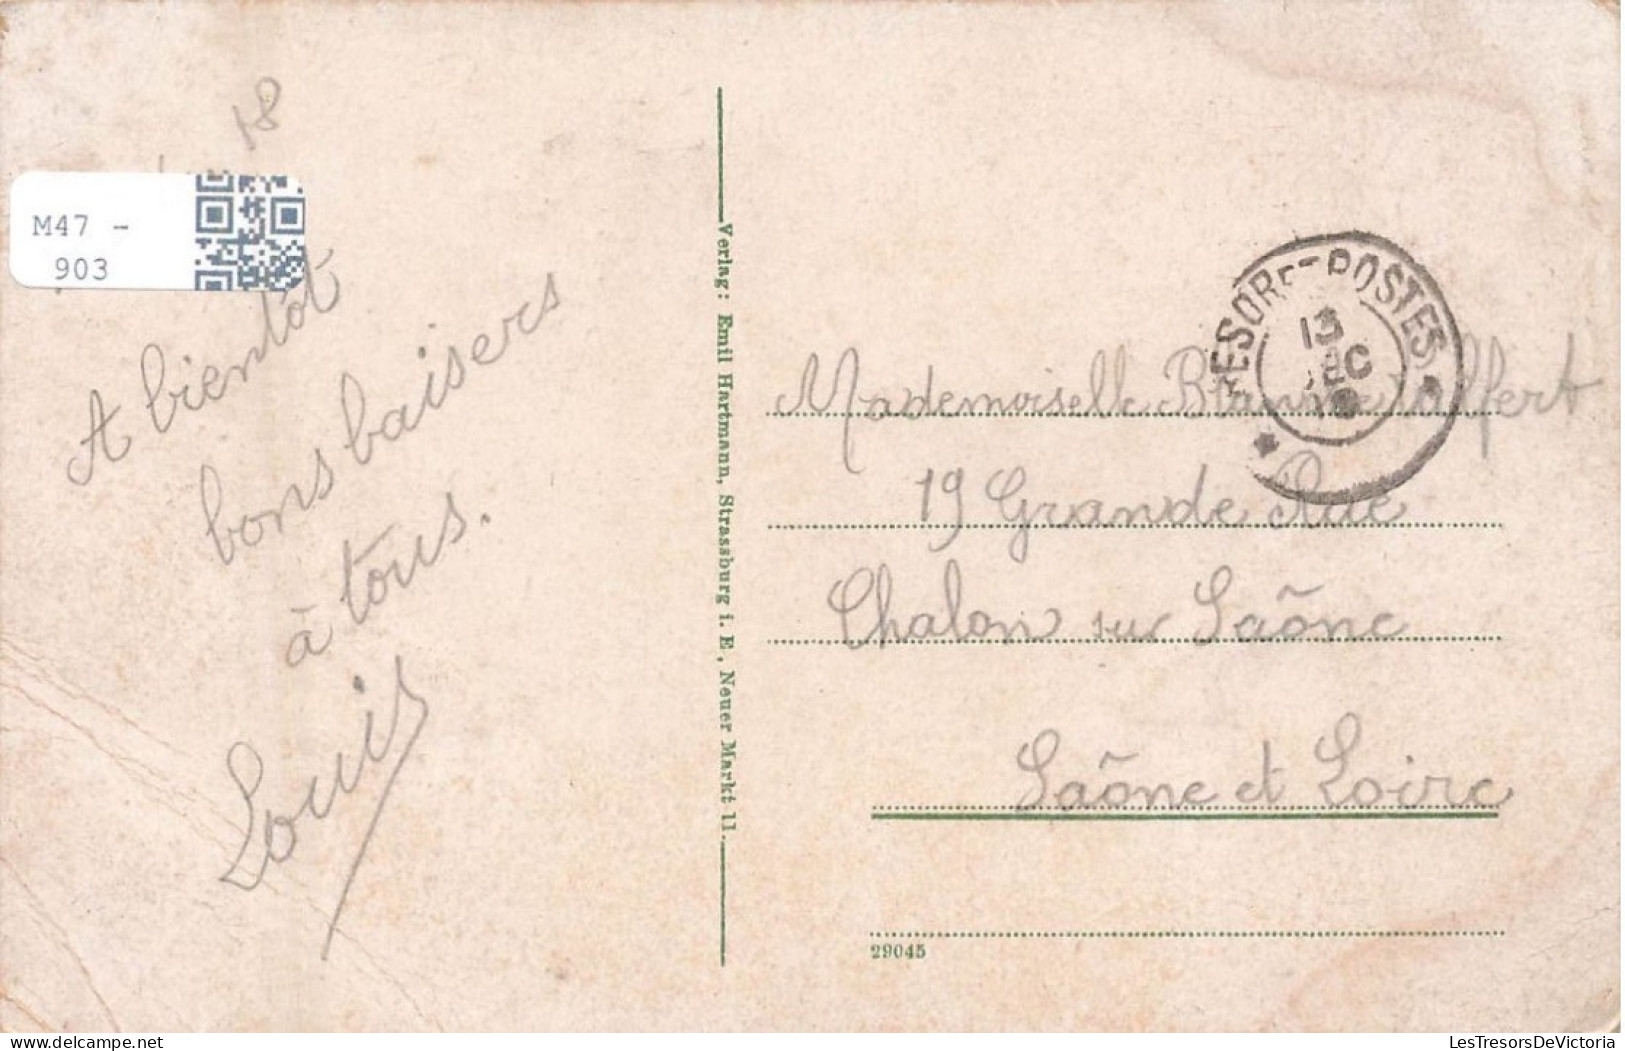 18
M47 -
903
A bientôt
bons baisers
à tous.
Louis
Verlag: Emil Hartmann, Strassburg i. E., Neuer Markt 11.
TRESOR ET POSTES
13
DEC
18
Mademoiselle Blanche
19 Grande Rue
Chalon sur Saône
Saône et Loire
29045
LesTresorsDeVictoria